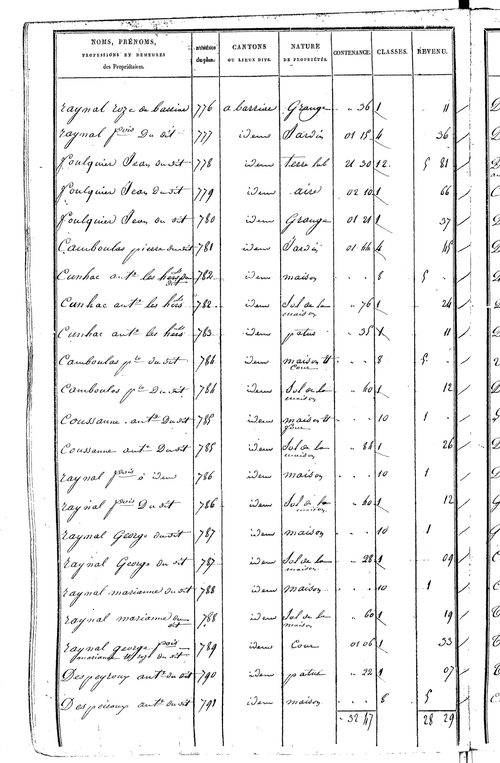 NOMS, PRÉNOMS, PROFESSIONS ET DEMEURES des Propriétaires. NUMÉROS du plan. CANTONS OU LIEUX DITS. NATURE DE PROPRIÉTÉS. CONTENANCE. CLASSES. REVENU.
raynal roze de barrine 776 a barrine Grange .. 36 1 11
raynal fois du dit 777 idem Jardin 01 15 4 36
foulquier Jean du dit 778 idem terre lab 21 30 12. 5 81
foulquier Jean du dit 779 idem aire 02 10 1 66
foulquier Jean du dit 780 idem Grange 01 21 1 37
Camboulas pierre du dit 781 idem Jardin 01 44 4 45
Cunhac ante les hers du dit 782 idem maison . . . 8 5 .
Cunhac ante les hers 782 idem Sol de la maison .. 76 1 24
Cunhac ante les hers 783 idem patus .. 35 1 11
Camboulas pre du dit 784 idem maison et Cour . . . 8 5 .
Camboulas pre du dit 784 idem Sol de la maison .. 40 1 12
Coussanne ante du dit 785 idem maison et four . . . 10 1 .
Coussanne ante du dit 785 idem Sol de la maison .. 84 1 26
raynal fois à idem 786 idem maison . . . 10 1
raynal fois du dit 786 idem Sol de la maison .. 40 1 12
raynal George du dit 787 idem maison . . . 10 1
raynal George du dit 787 idem Sol de la maison .. 28 1 09
raynal marianne du dit 788 idem maison . . . 10 1
raynal marianne du dit 788 idem Sol de la maison .. 60 1 19
raynal george fois marianne et roze du dit 789 idem Cour 01 06 1 33
Despeyroux ante du dit 790 idem patus .. 22 1 07
Despeiroux ante du dit 791 idem maison . . . 8 5
. 32 47 28 29